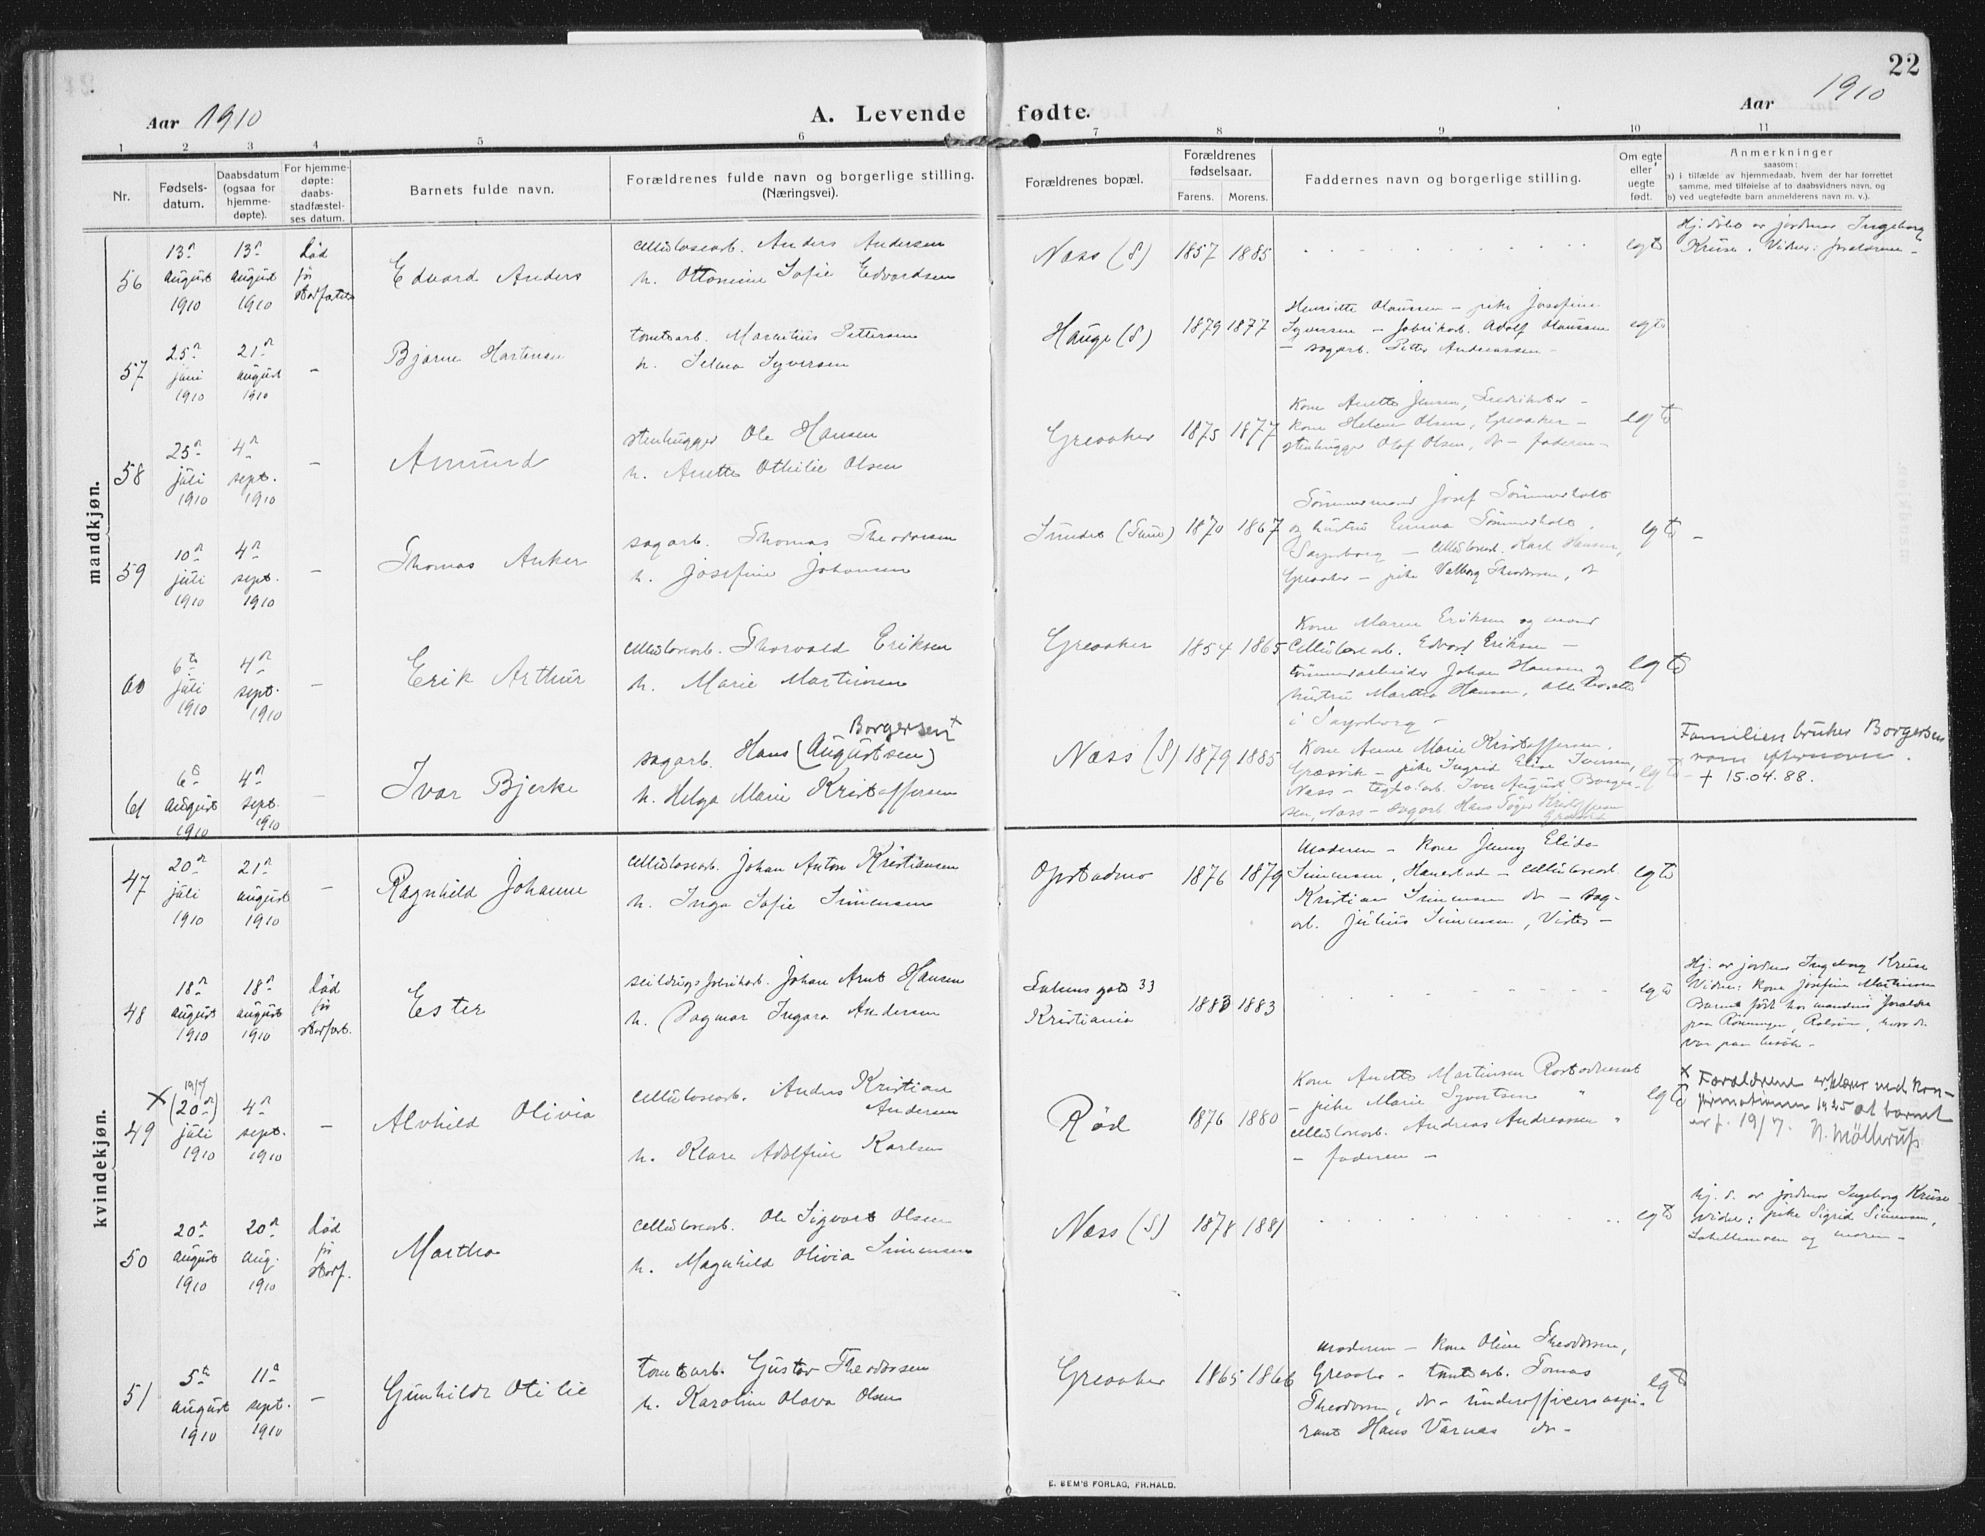 22
Aar 1910 A. Levende fødte. Aar 1910
1 2 3 4 5 6 7 8 9 10 11
Nr.
Fødsels-
datum.
Daabsdatum
(ogsaa for
hjemme-
døpte).
For hjemme-
døpte:
daabs-
stadfæstel-
ses datum.
Barnets fulde navn.
Forældrenes fulde navn og borgerlige stilling.
(Næringsvei).
Forældrenes bopæl.
Forældrenes
fødselsaar.
Farens. Morens.
Faddernes navn og borgerlige stilling.
Om egte
eller
uegte
født.
Anmerkninger
saasom:
a) i tilfælde av hjemmedaab, hvem der har forrettet
samme, med tilføielse af to daabsvidners navn, og
b) ved uegtefødte barn anmelderens navn m. v.).
mandkjøn.
56
13de
august
1910
13de
august
1910
død
før
stadfæstelse
Edvard Anders
cellulosearb. Anders Andersen
h. Ottomine Sofie Edvardsen
Næss (S) 1857 1885
egte
Hj. døbt av jordmor Ingeborg
Kruse. Vidner: forældrene -
57
25de
juni
1910
21de
august
1910
-
Bjarne Martinsen
tomtearb. Marentius Pettersen
h. Selma Syversen
Hauge (S) 1879 1877
Henriette Olaussen - pike Josefine
Syversen - fabrikarb. Adolf Olaussen
- sagarb. Petter Andreassen -
egte
58
25de
juli
1910
4de
sept.
1910
-
Amund
stenhugger Ole Hansen
h. Anette Othilie Olsen
Greaaker 1875 1877
Kone Anette Jensen, Fredrikstad -
kone Helene Olsen, Greaaker -
stenhugger Olaf Olsen, do - faderen -
egte
59
10de
juli
1910
4de
sept.
1910
-
Thomas Anker
sagarb. Thomas Theodorsen
h. Josefine Johansen
Sundet (Tune) 1870 1867
Tømmermand Josef Tømmerholt
og hustru Emma Tømmerholt,
Sarpsborg - cellulosearb. Karl Hansen,
Greaaker - pike Valborg Theodorsen, do
egte -
60
6te
juli
1910
4de
sept.
1910
-
Erik Arthur
cellulosearb. Thorvald Eriksen
h. Marie Martinsen
Greaaker 1854 1865
Kone Maren Eriksen og mand
cellulosearb. Edvard Eriksen -
tømmerarbeider Johan Hansen og
hustru Martha Hansen, alle bosatte
i Sarpsborg -
egte
61
6te
august
1910
4de
sept.
1910
-
Ivar Bjerke
Borgersen +
sagarb. Hans (Augustsen)
h. Helga Marie Kristoffersen
Næss (S) 1879 1885
Kone Anne Marie Kristoffersen,
Græsvik - pike Ingrid Elise Iversen,
Næss - teglv.arb. Iver August Borger-
sen, Næss - sagarb. Hans Kristoffersen
egte -
Familien bruker Borgersen
som efternavn.
+ 15.04.88.
kvindekjøn.
47
20de
juli
1910
21de
august
1910
-
Ragnhild Johanne
cellulosearb. Johan Anton Kristiansen
h. Inga Sofie Simensen
Opstadmo 1876 1879
Moderen - kone Jenny Elida
Simensen, Hanestad - cellulosearb.
Kristian Simensen do - sag-
arb. Julius Simensen, Vister -
egte
48
18de
august
1910
18de
august
1910
død
før
stadfæst.
Ester
seildugsfabrikarb. Johan Arnt Hansen
h. Dagmar Ingara Andersen
gate 33
Kristiania
1883 1883
egte
Hj. av jordmor Ingeborg Kruse
Vidner: kone Josefine Martinsen
Barnet født hos mandens forældre
paa Rønningen, Rolsøen, hvor de
var paa besøk -
49
19/7
× (20de)
juli
1910
4de
sept.
1910
-
Alvhild Olivia
cellulosearb. Anders Kristian
Andersen
h. Klara Adolfine Karlsen
Rød 1876 1880
Kone Anette Martinsen Rostadneset
- pike Marie Syvertsen "
cellulosearb. Andreas Andreassen "
- faderen -
egte
× Forældrene erklærer ved kon-
firmationen 1925 at barnet
er f. 19/7. N. Møllerup
50
20de
august
1910
20de
aug.
1910
død
før
stadf.
Martha
cellulosearb. Ole Sigvart Olsen
h. Magnhild Olivia Simensen
Næss (S) 1878 1881
egte
hj. d. av jordmor Ingeborg Kruse
Vidner: pike Sigrid Simensen,
og moren -
51
5te
august
1910
11te
sept.
1910
-
Gunhilde Otilie
tomtearb. Gustav Theodorsen
h. Karoline Olava Olsen
Greaaker 1865 1866
Moderen - kone Oline Theodorsen,
Greaaker - tomtearb. Tomas
Theodorsen, do - underofficersaspi-
rant Hans Varnæs do -
egte
E. SEM'S FORLAG, FR.HALD.